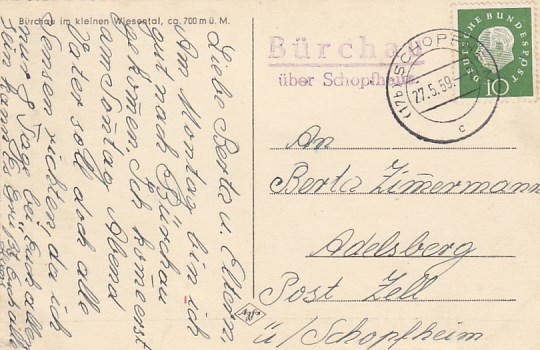 Bürchau im kleinen Wiesental, ca. 700 m ü. M.
Liebe Berta u. Eltern,
Am Montag bin ich
gut nach Bürchau
gekom̄en Ich kom̄e erst
am Son̄tag Abend
Vater soll doch alle
Sensen richten, da ich
nur 8 Tage bei Euch allen
sein kann. Es grüßt Euch alle
Bürchau
über Schopfheim
(17b) SCHOPFHEIM
27.5.59.
c
DEUTSCHE BUNDESPOST
10
An
Berta Zim̄ermann
Adelsberg
Post Zell
ü/Schopfheim
Agfa